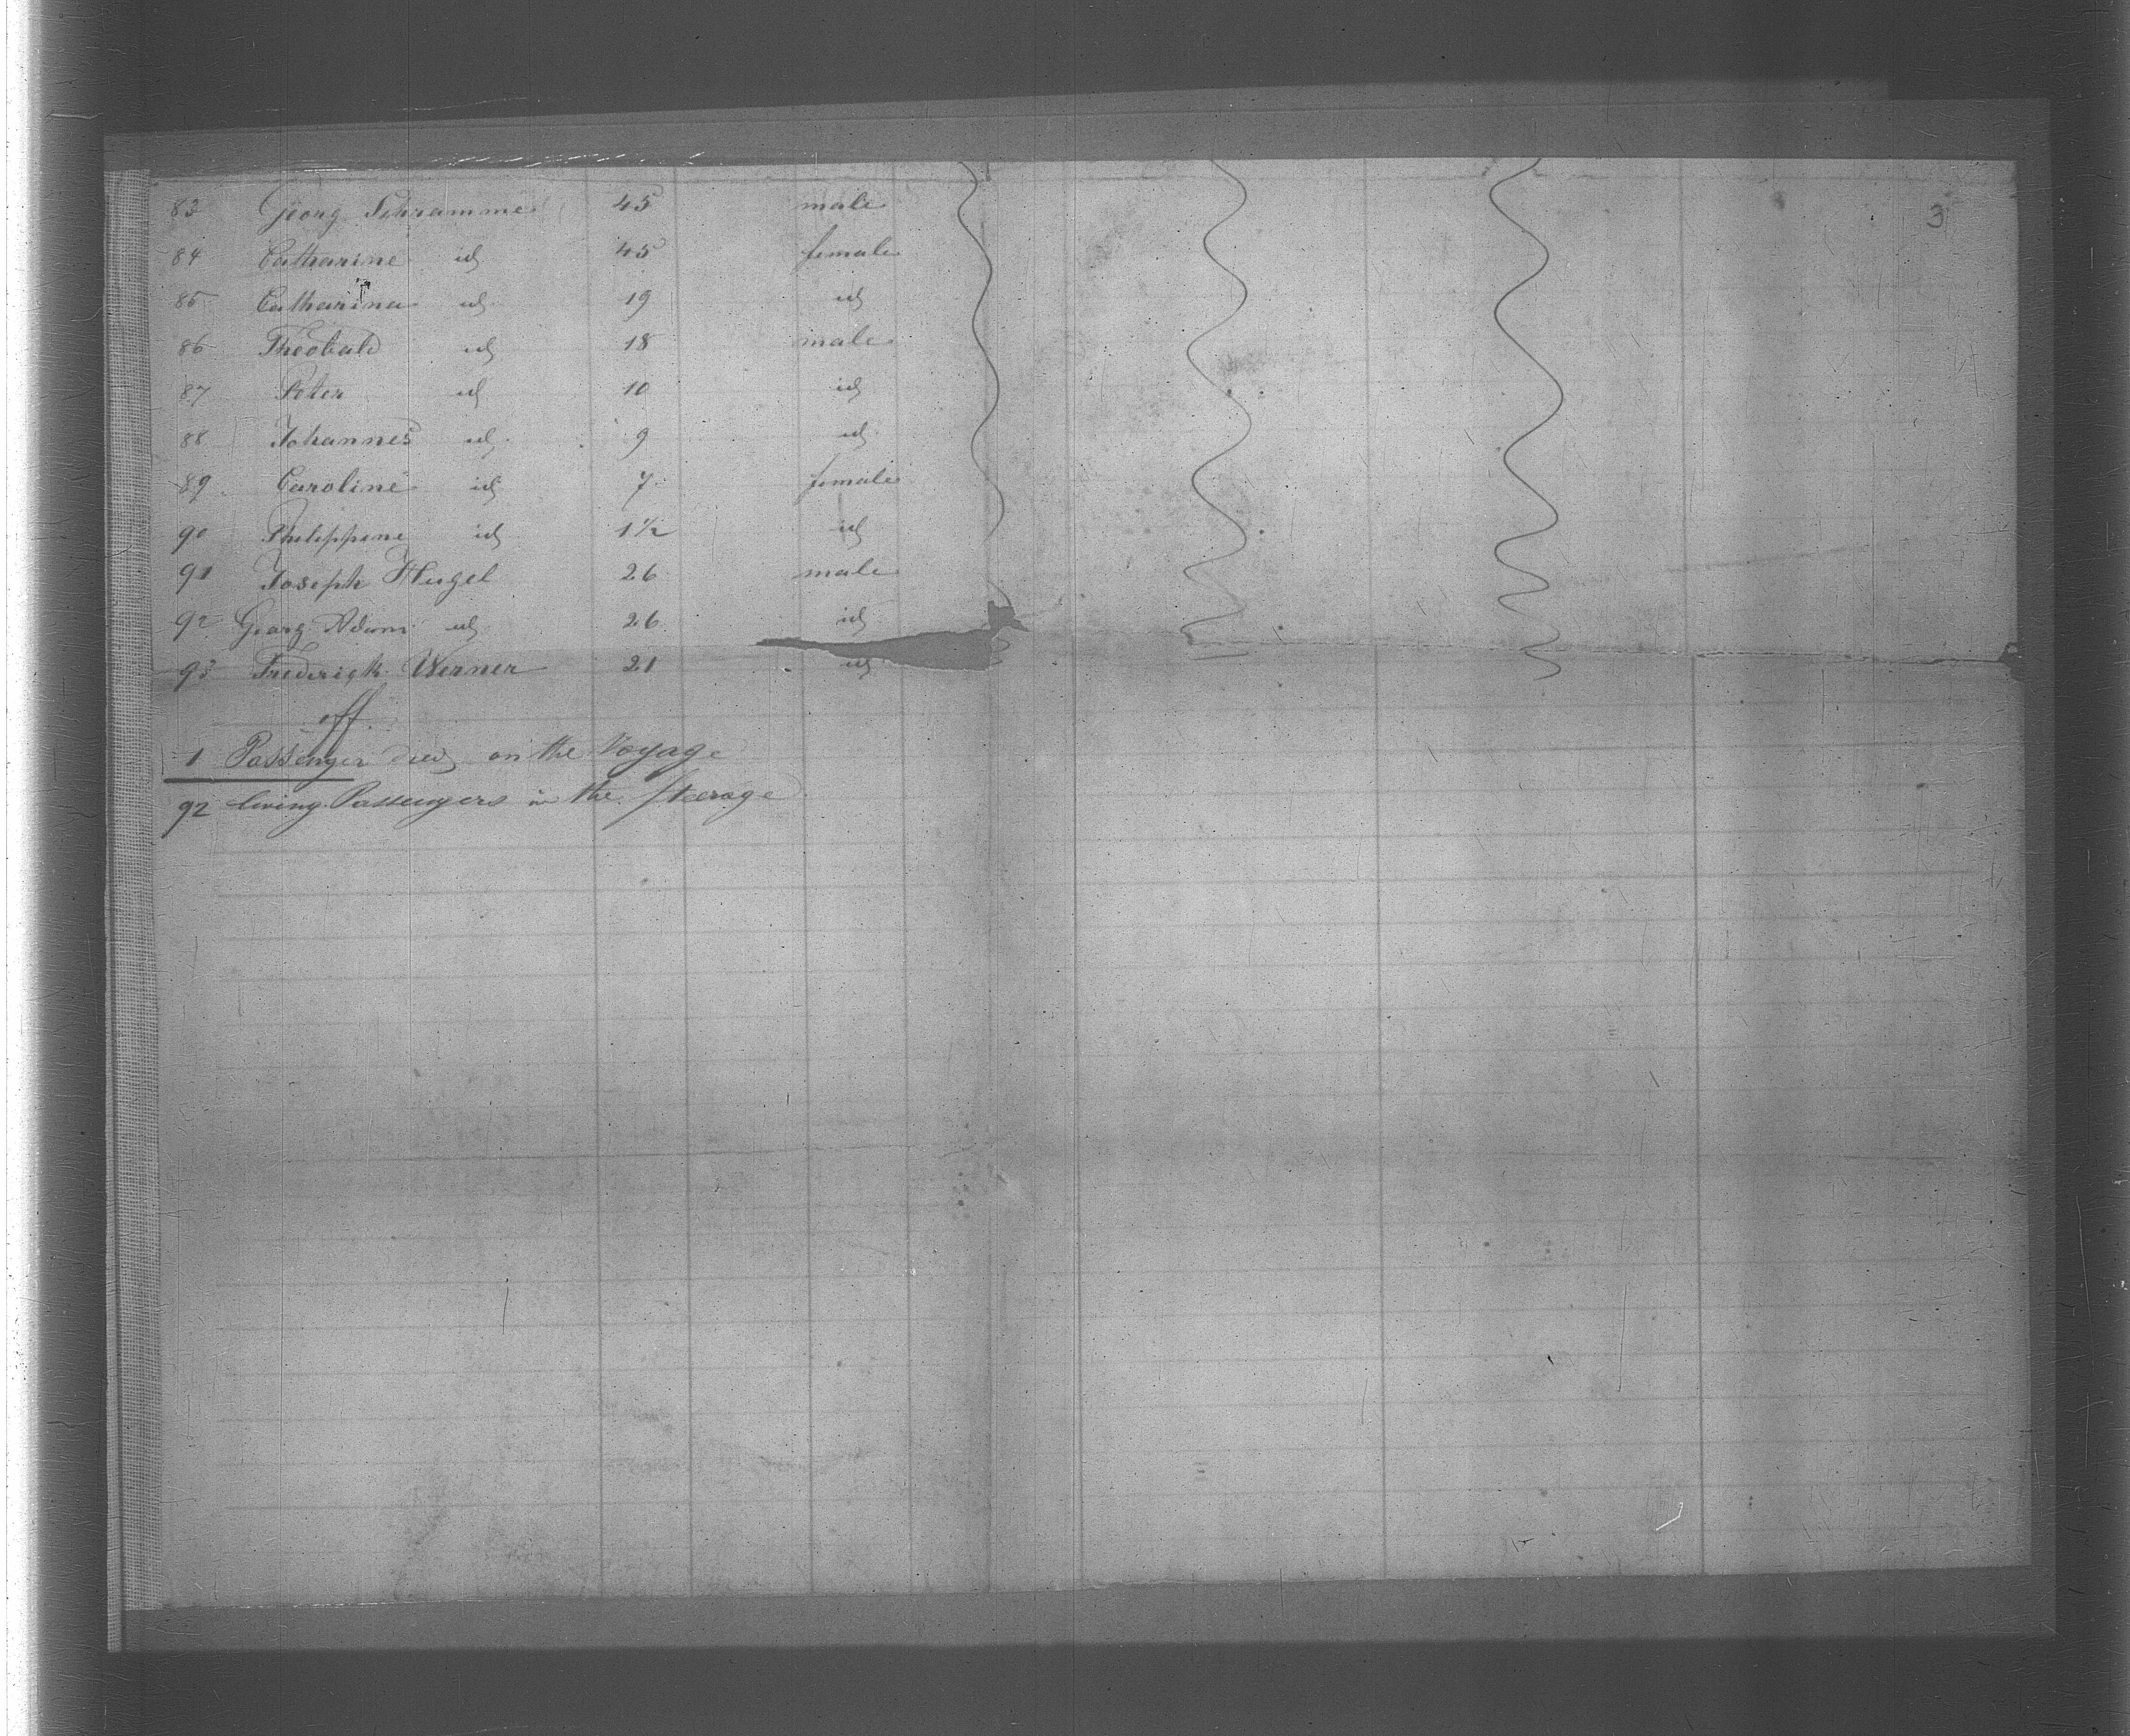 3
83 Georg Schramme 45 male
84 Catharine id 45 female
85 Catharina id 19 id
86 Theobald id 18 male
87 Peter id 10 id
88 Johannes id 9 id
89 Caroline id 7 female
90 Philippine id 1½ id
91 Joseph Hugel 26 male
92 Georg Adam id 26 id
93 Frederick Werner 21 id
off
1 Passenger died on the Voyage
92 living Passengers in the Steerage